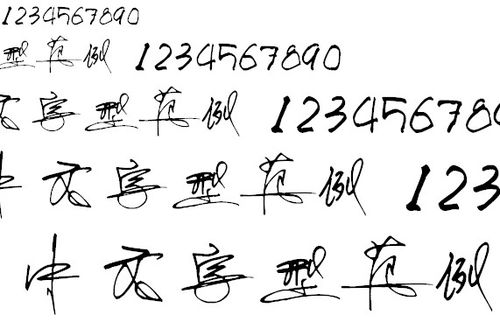 1234567890
型范例 1234567890
文字型范例 123456789
中文字型范例 123
中文字型范例